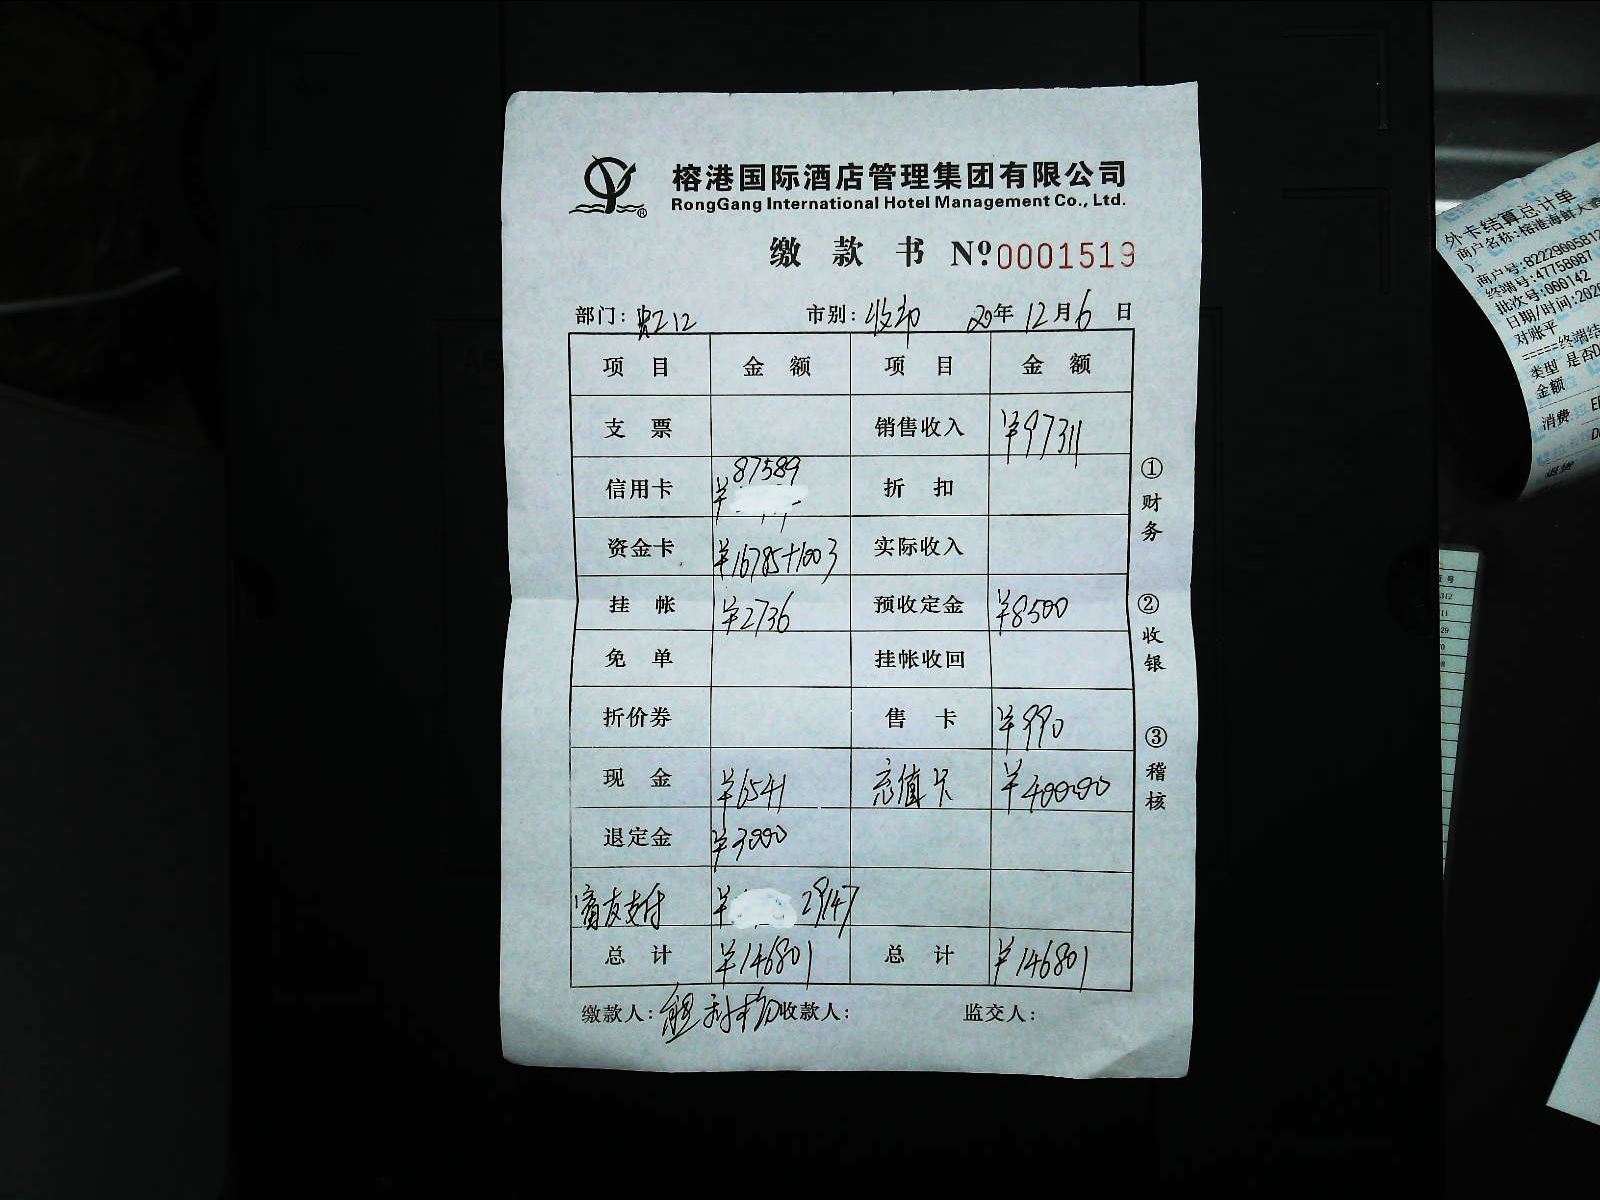 榕港国际酒店管理集团有限公司
RongGang International Hotel Management Co., Ltd.
缴款书 Nº 0001519
部门： 市别：收 20年12月6日
项目 金额 项目 金额
支票 销售收入 ¥97311
信用卡 ¥87589 折扣
资金卡 ¥16785+1003 实际收入
挂帐 ¥2736 预收定金 ¥8500
免单 挂帐收回
折价券 售卡 ¥990
现金 ¥6541 充值卡 ¥40000
退定金 ¥3000
支付 ¥29147
总计 ¥146801 总计 ¥146801
缴款人： 收款人： 监交人：
①财务
②收银
③稽核
外卡结算总计单
商户名称:榕港海鲜大酒
商户号:82229005812
终端号:47758087
批次号:060142
日期/时间:202
对账平
类型 是否D
金额
消费
退货